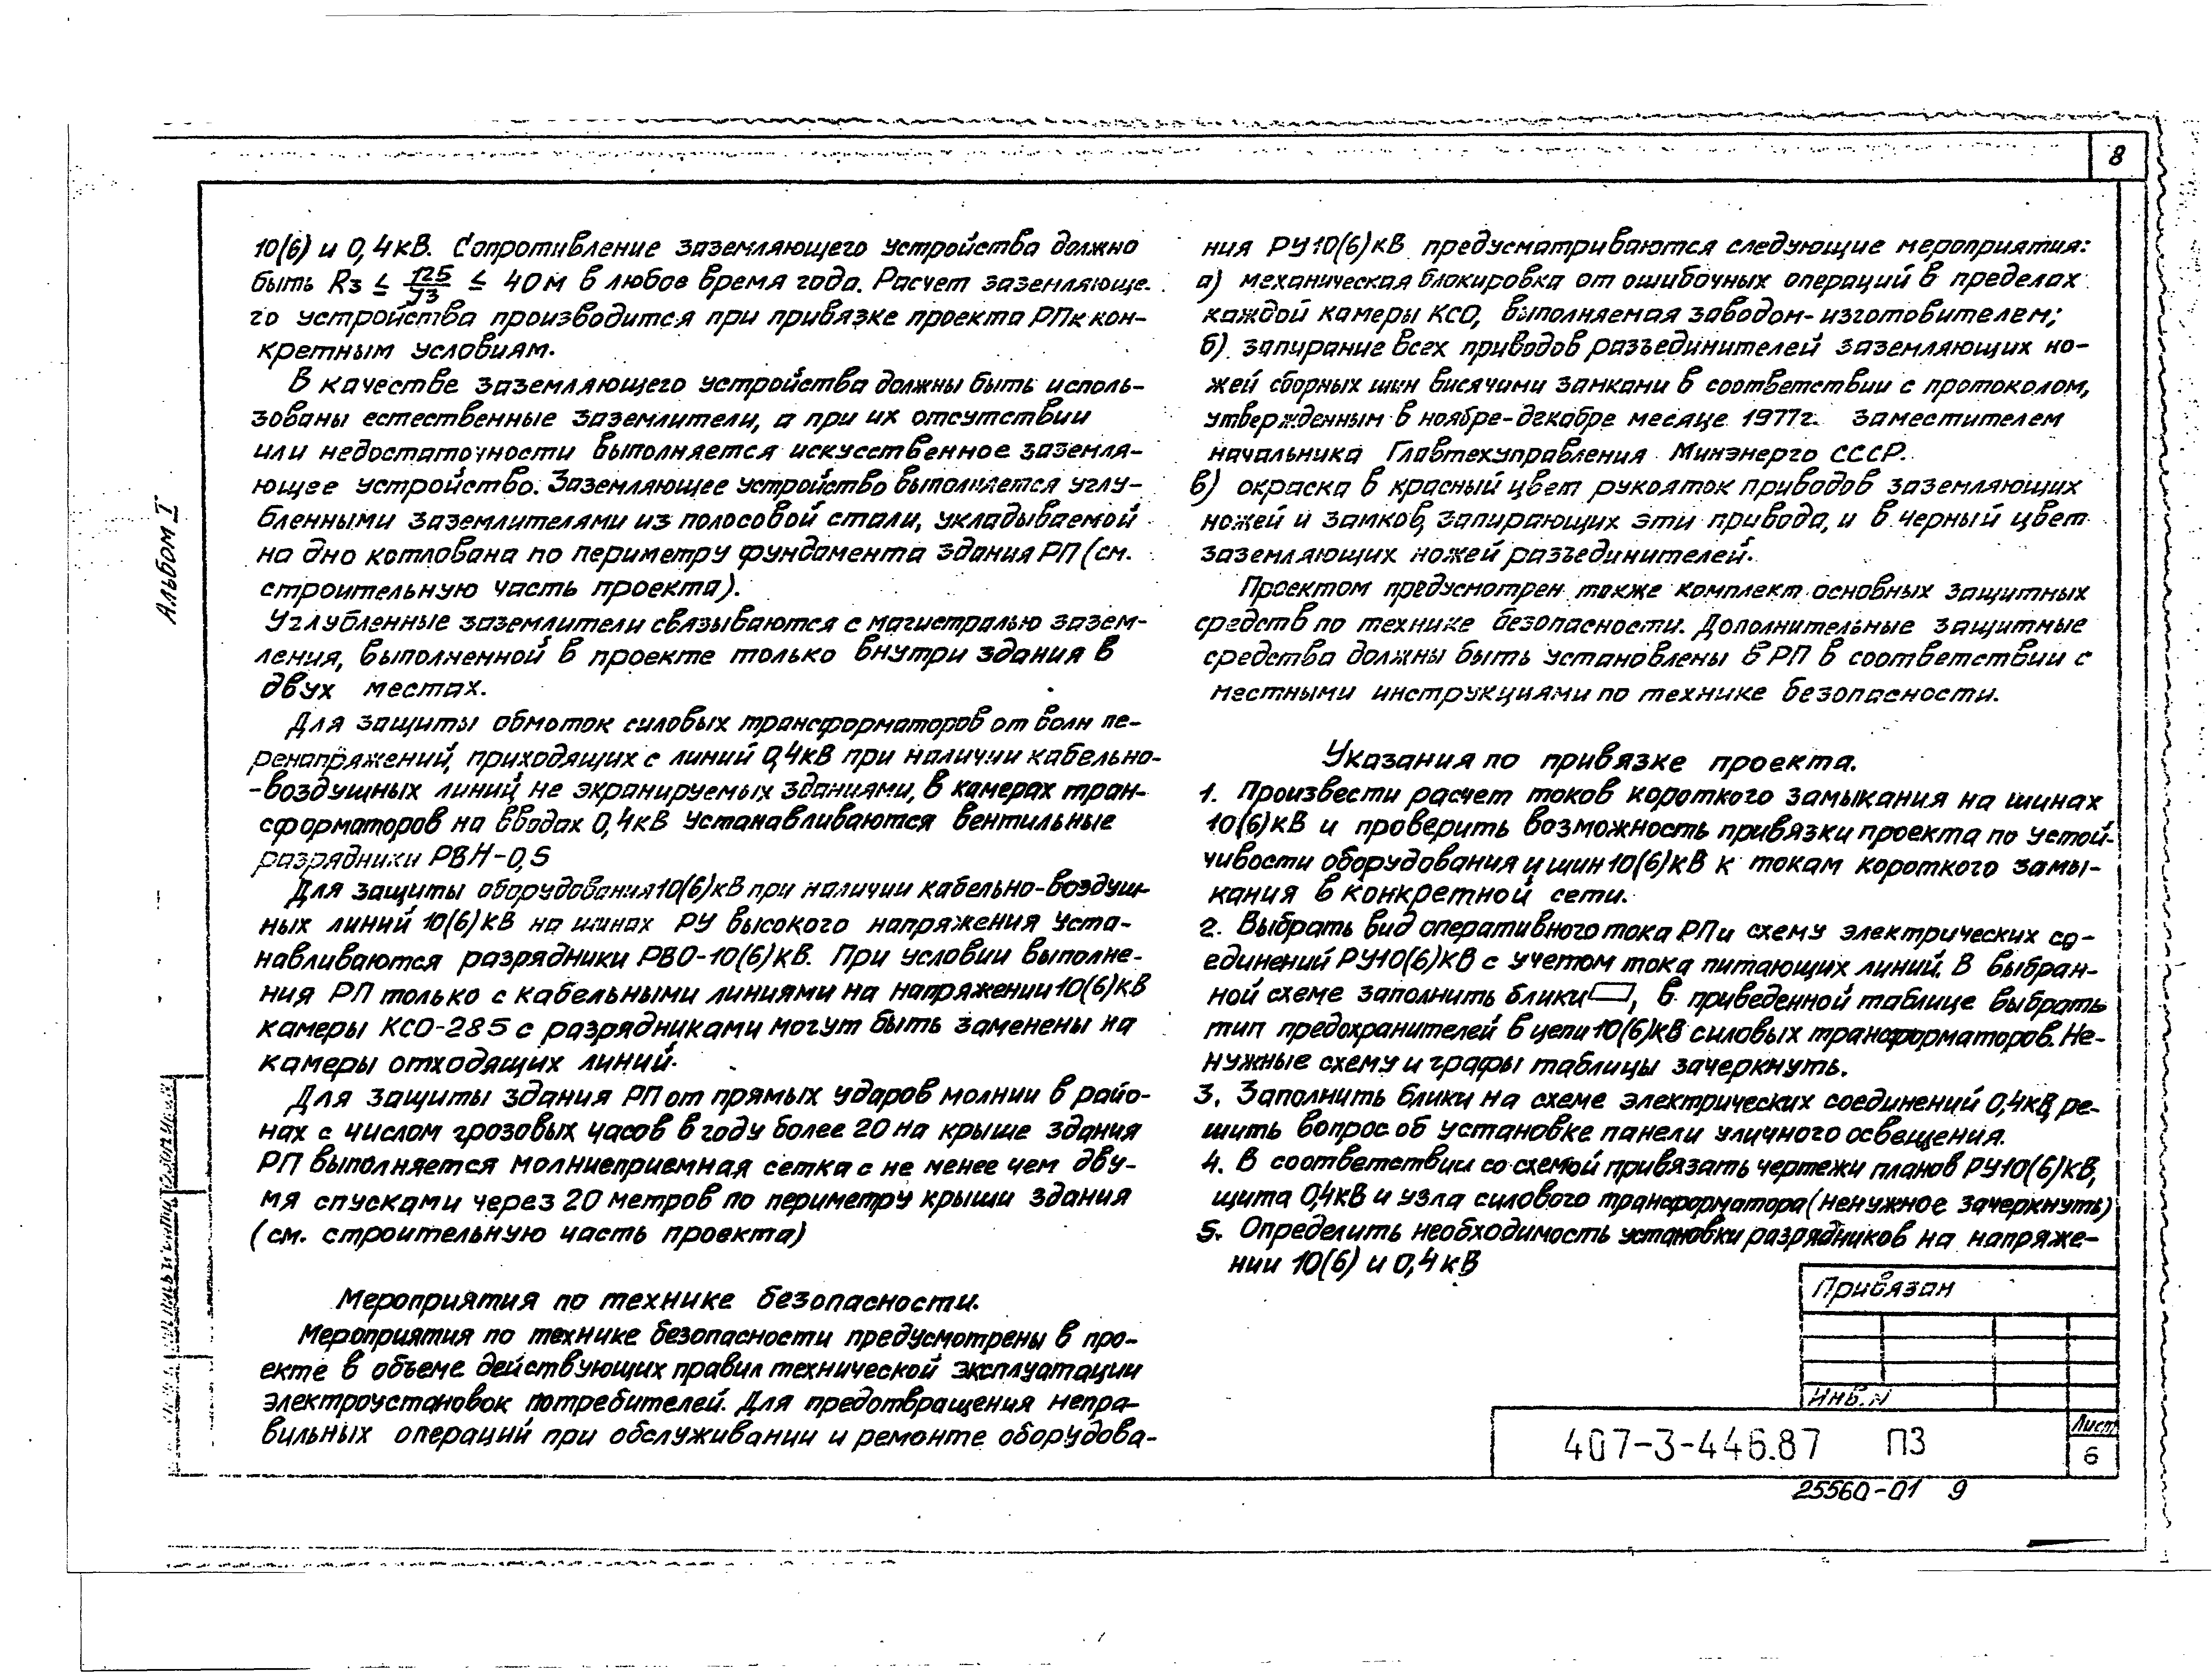 8
Альбом I
10(6) и 0,4кВ. Сопротивление заземляющего устройства должно
быть Rз ≤ 125/Jз ≤ 4 Ом в любое время года. Расчет заземляюще-
го устройства производится при привязке проекта РП к кон-
кретным условиям.
В качестве заземляющего устройства должны быть исполь-
зованы естественные заземлители, а при их отсутствии
или недостаточности выполняется искусственное заземля-
ющее устройство. Заземляющее устройство выполняется углу-
бленными заземлителями из полосовой стали, укладываемой
на дно котлована по периметру фундамента здания РП (см.
строительную часть проекта).
Углубленные заземлители связываются с магистралью зазем-
ления, выполненной в проекте только внутри здания в
двух местах.
Для защиты обмоток силовых трансформаторов от волн пе-
ренапряжений, приходящих с линий 0,4кВ при наличии кабельно-
-воздушных линий, не экранируемых зданиями, в камерах тран-
сформаторов на вводах 0,4кВ устанавливаются вентильные
разрядники РВН-0,5
Для защиты оборудования 10(6)кВ при наличии кабельно-воздуш-
ных линий 10(6)кВ на шинах РУ высокого напряжения уста-
навливаются разрядники РВО-10(6)кВ. При условии выполне-
ния РП только с кабельными линиями на напряжении 10(6)кВ
камеры КСО-285 с разрядниками могут быть заменены на
камеры отходящих линий.
Для защиты здания РП от прямых ударов молнии в райо-
нах с числом грозовых часов в году более 20 на крыше здания
РП выполняется молниеприемная сетка с не менее чем дву-
мя спусками через 20 метров по периметру крыши здания
(см. строительную часть проекта)
Мероприятия по технике безопасности.
Мероприятия по технике безопасности предусмотрены в про-
екте в объеме действующих правил технической эксплуатации
электроустановок потребителей. Для предотвращения непра-
вильных операций при обслуживании и ремонте оборудова-
ния РУ10(6)кВ предусматриваются следующие мероприятия:
а) механическая блокировка от ошибочных операций в пределах
каждой камеры КСО, выполняемая заводом-изготовителем;
б) запирание всех приводов разъединителей заземляющих но-
жей сборных шин висячими замками в соответствии с протоколом,
утвержденным в ноябре-декабре месяце 1977г. заместителем
начальника Главтехуправления Минэнерго СССР.
в) окраска в красный цвет рукояток приводов заземляющих
ножей и замков, запирающих эти привода, и в черный цвет
заземляющих ножей разъединителей.
Проектом предусмотрен также комплект основных защитных
средств по технике безопасности. Дополнительные защитные
средства должны быть установлены в РП в соответствии с
местными инструкциями по технике безопасности.
Указания по привязке проекта.
1. Произвести расчет токов короткого замыкания на шинах
10(6)кВ и проверить возможность привязки проекта по устой-
чивости оборудования и шин 10(6)кВ к токам короткого замы-
кания в конкретной сети.
2. Выбрать вид оперативного тока РП и схему электрических со-
единений РУ10(6)кВ с учетом тока питающих линий. В выбран-
ной схеме заполнить блики ▭, в приведенной таблице выбрать
тип предохранителей в цепи 10(6)кВ силовых трансформаторов. Не-
нужные схему и графы таблицы зачеркнуть.
3. Заполнить блики на схеме электрических соединений 0,4кВ, ре-
шить вопрос об установке панели уличного освещения.
4. В соответствии со схемой привязать чертежи планов РУ10(6)кВ,
щита 0,4кВ и узла силового трансформатора (ненужное зачеркнуть)
5. Определить необходимость установки разрядников на напряже-
нии 10(6) и 0,4кВ
Привязан
Инв.N
407-3-446.87 ПЗ
Лист
6
25560-01 9